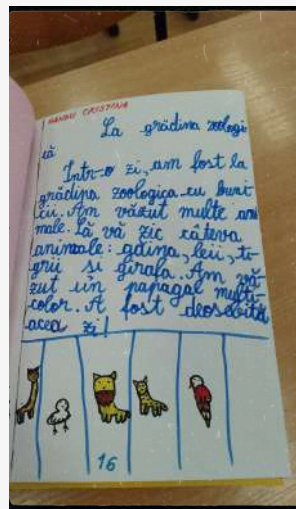 HANGU CRISTINA
La grădina zoologi
că
Într-o zi, am fost la
grădina zoologica cu buni-
cii. Am văzut multe ani
male. Să vă zic câteva
animale: găina, leii, ti-
grii si girafa. Am vă-
zut un papagal multi-
color. A fost deosebită
acea zi!
16